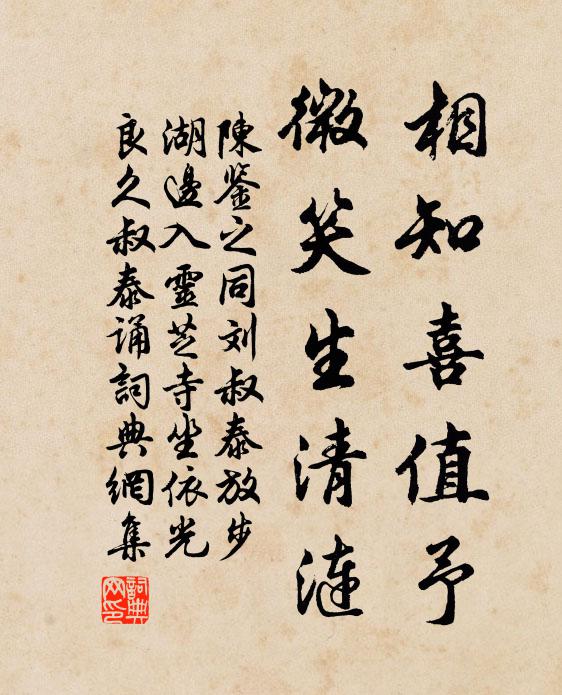 相知喜值予
微笑生清漣
陳鉴之同刘叔泰放步
湖邊入靈芝寺坐依光
良久叔泰誦詞典網集
詞典網印